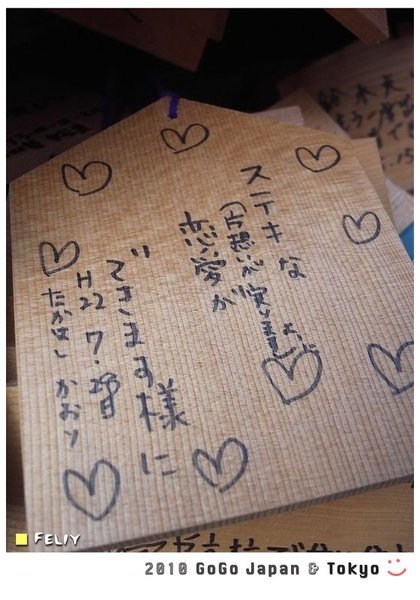 ステキな
(片想いが実りますように
恋愛が
できます様に
H22 7.28日
たかはし かおり
FELIY
2010 GoGo Japan & Tokyo